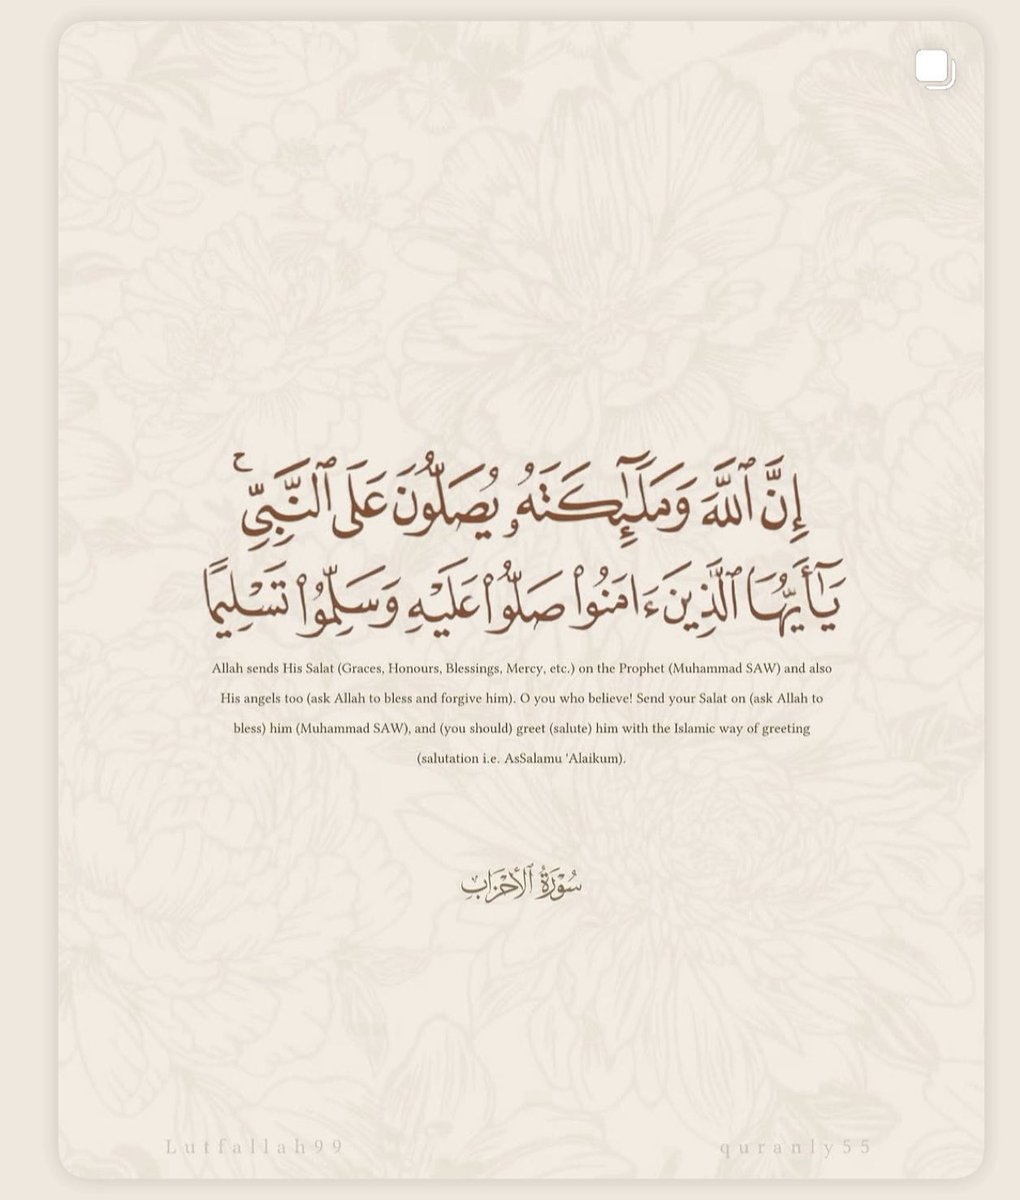 إِنَّ ٱللَّهَ وَمَلَٰٓئِكَتَهُۥ يُصَلُّونَ عَلَى ٱلنَّبِىِّ ۚ
يَٰٓأَيُّهَا ٱلَّذِينَ ءَامَنُوا۟ صَلُّوا۟ عَلَيْهِ وَسَلِّمُوا۟ تَسْلِيمًا
Allah sends His Salat (Graces, Honours, Blessings, Mercy, etc.) on the Prophet (Muhammad SAW) and also
His angels too (ask Allah to bless and forgive him). O you who believe! Send your Salat on (ask Allah to
bless) him (Muhammad SAW), and (you should) greet (salute) him with the Islamic way of greeting
(salutation i.e. AsSalamu 'Alaikum).
سُورَةُ ٱلْأَحْزَابِ
Lutfallah99 quranly55